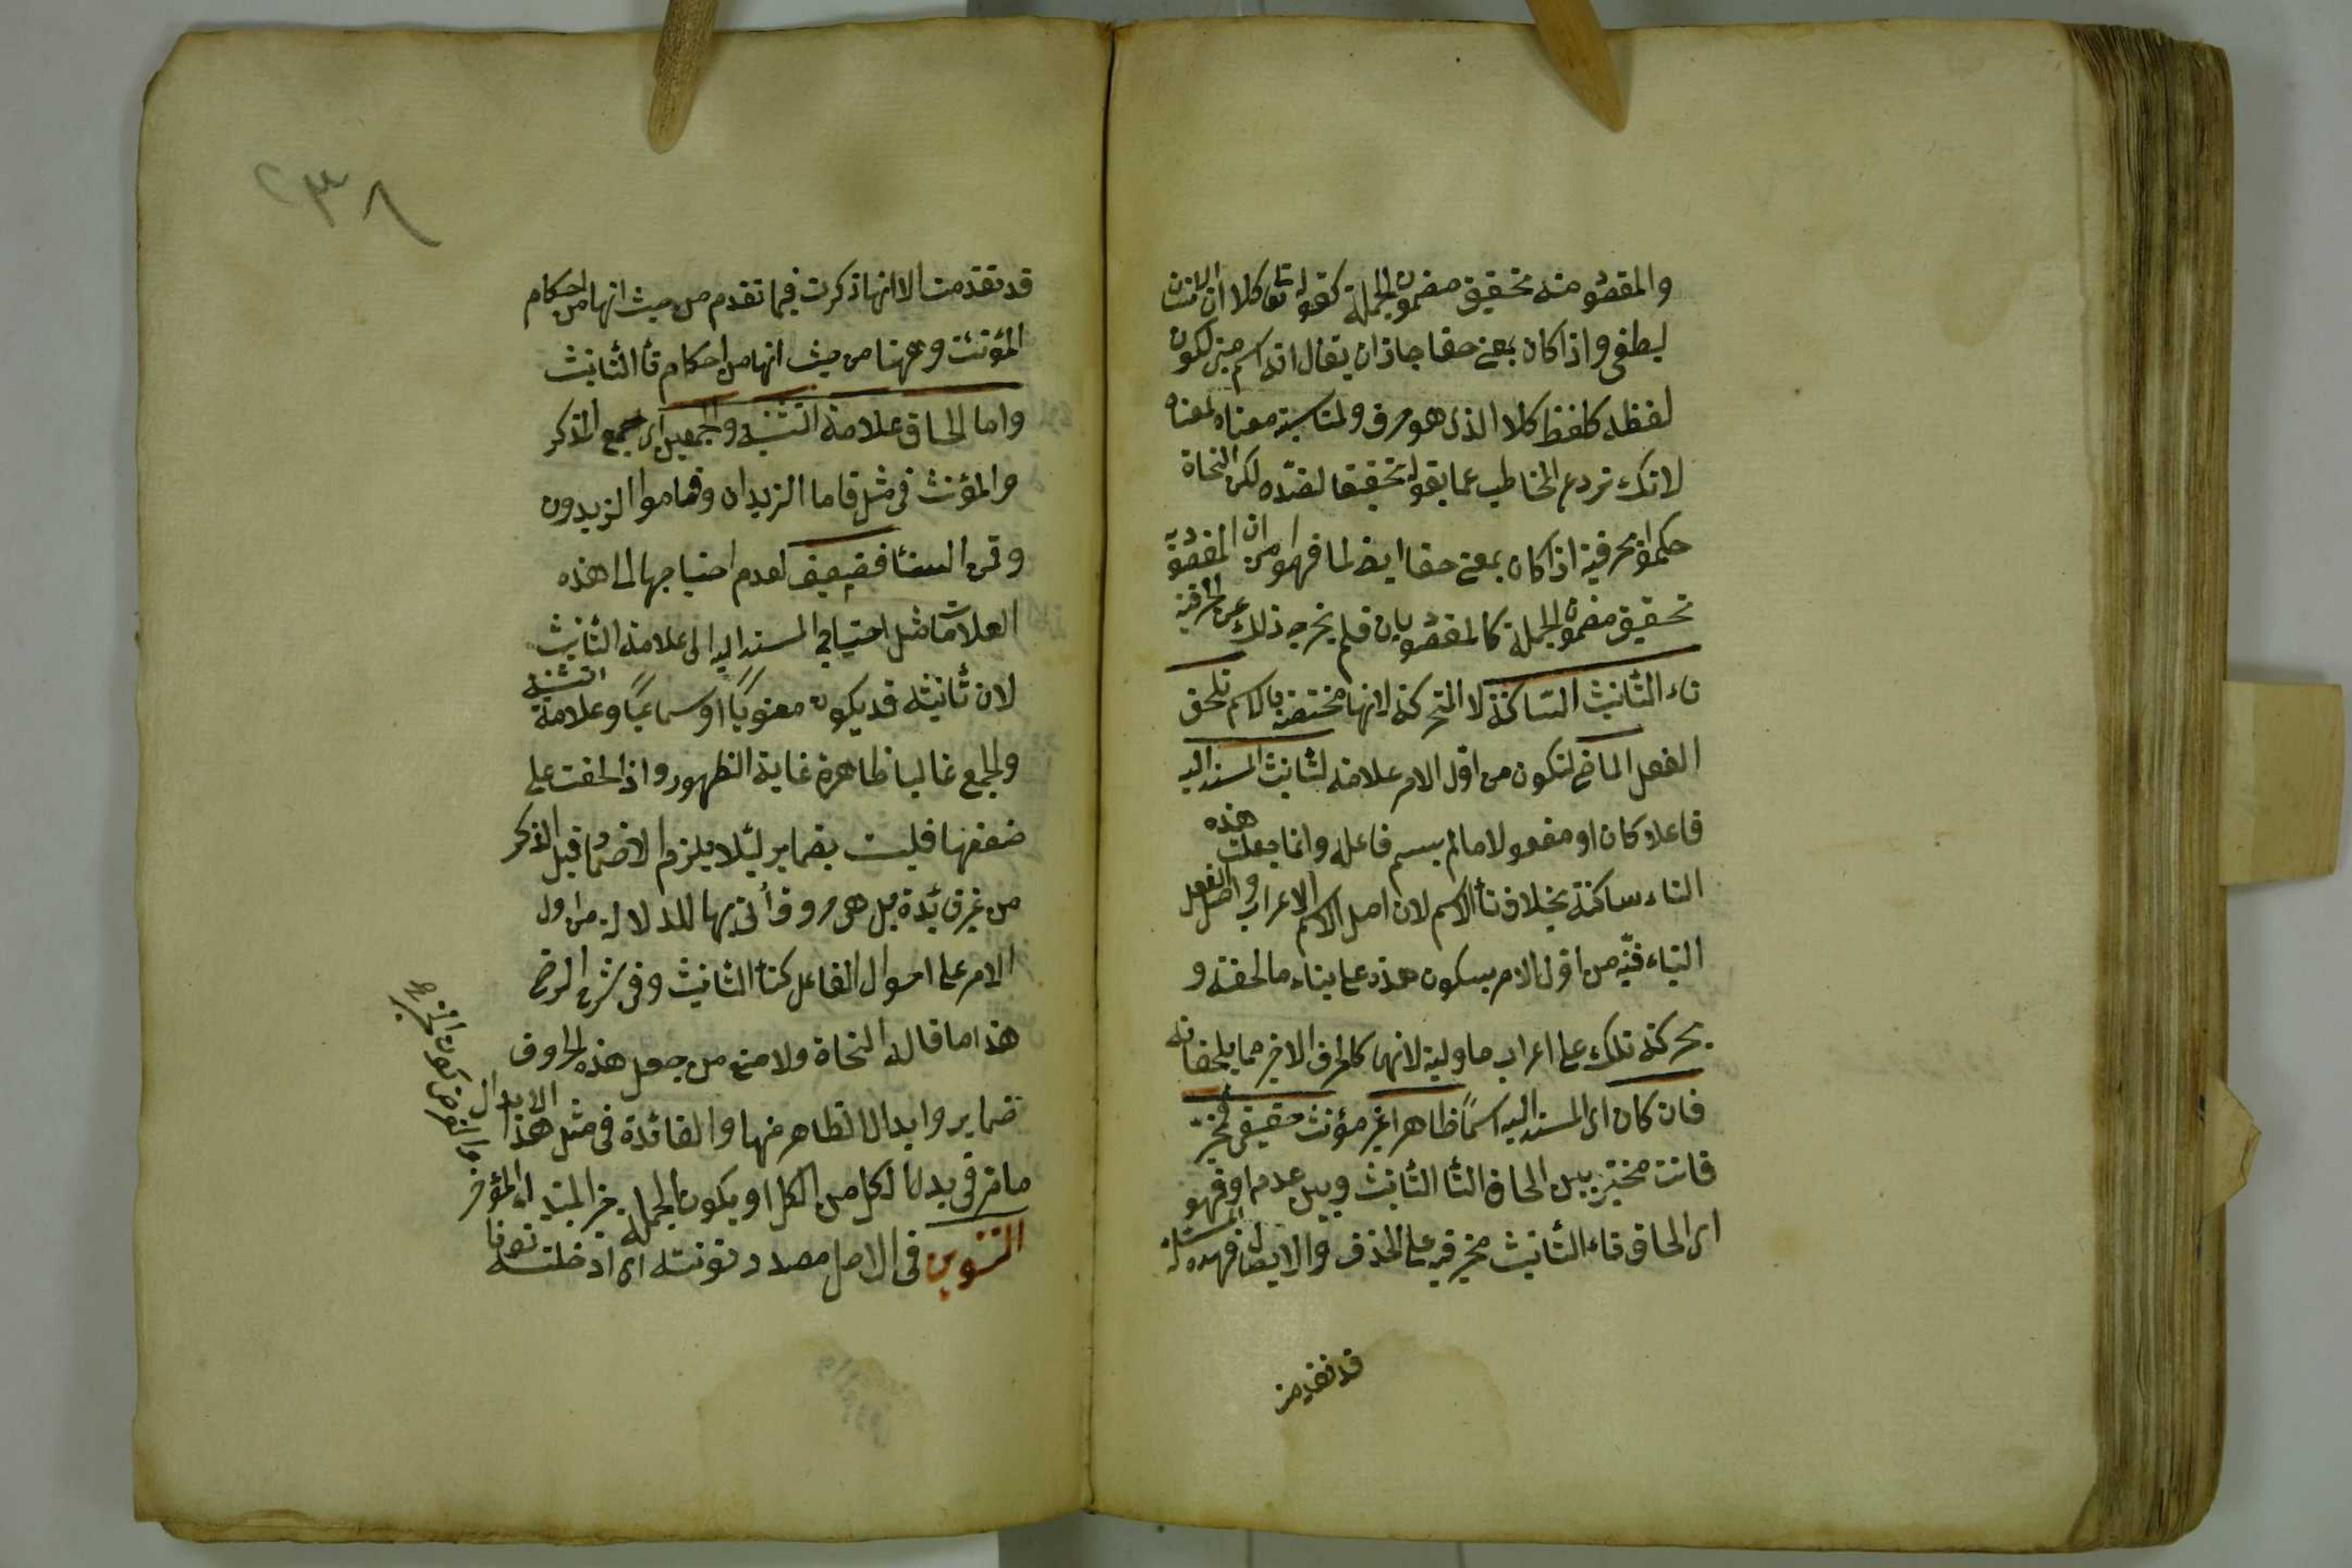 والمقصو منه تحقيق مضمون الجملة كقوله تعا كلا ان الانسان
ليطغى واذا كان بمعنى حقا جاز ان يقال انه اسم بنى لكون
لفظه كلفظ كلا الذى هو حرف ولمناسبة معناه لمعناه
لانك تردع المخاطب عما يقوله تحقيقا لضده لكن النحاة
حكموا بحرفيته اذا كان بمعنى حقا ايضا لما فهموا من ان المقصود به
تحقيق مضمون الجملة كالمقصو بان فلم يخرجه ذلك عن الحرفية
تاء التانيث الساكنة لا المتحركة لانها مختصة بالاسم تلحق
الفعل الماضى لتكون من اول الامر علامة لتانيث المسند اليه
فاعلا كان او مفعولا ما لم يسم فاعله وانما جعلت هذه
التاء ساكنة بخلاف تأ الاسم لان اصل الاسم الاعراب واصل الفعل
البناء فنبه من اول الامر بسكون هذه على بناء ما لحقته و
بحركة تلك على اعراب ما وليته لانهما كالحرف الاخير مما يلحقانه
فان كان اى المسند اليه اسمًا ظاهرا غير مؤنث حقيقى فمخير
فانت مخير بين الحاق التأ التأنيث وبين عدمه او فهو
اى الحاق تاء التأنيث مخير فيه على الحذف والايصال فهذه المسئلة
قد تقدمت
٢٣٨
قد تقدمت الا انها ذكرت فيما تقدم من حيث انها من احكام
المؤنث وههنا من حيث انها من احكام تأ التأنيث
واما الحاق علامة التثنية والجمعين اى جمع المذكر
والمؤنث فى مثل قاما الزيدان وقاموا الزيدون
وقمن النسأ فضعيف لعدم احتياجها الى هذه
العلامات مثل احتياج المسند اليه الى علامة التأنيث
لان تأنيثه قد يكون معنويًا او سماعيًا وعلامة التثنية
والجمع غالبا ظاهرة غاية الظهور واذا لحقت على
ضعفها فليست بضماير لئلا يلزم الاضمار قبل الذكر
من غير فائدة بل هى حروف أتى بها للدلالة من اول
الامر على احوال الفاعل كتأ التأنيث وفى شرح الرضى
هذا ما قاله النحاة ولا منع من جعل هذه الحروف
ضماير وابدال الظاهر منها والفائدة فى مثل هذا الابدال
ما مر فى بدل الكل من الكل او يكون الجملة خبر المبتدا المؤخر
التنوين فى الاصل مصدر نونته اى ادخلته نونا